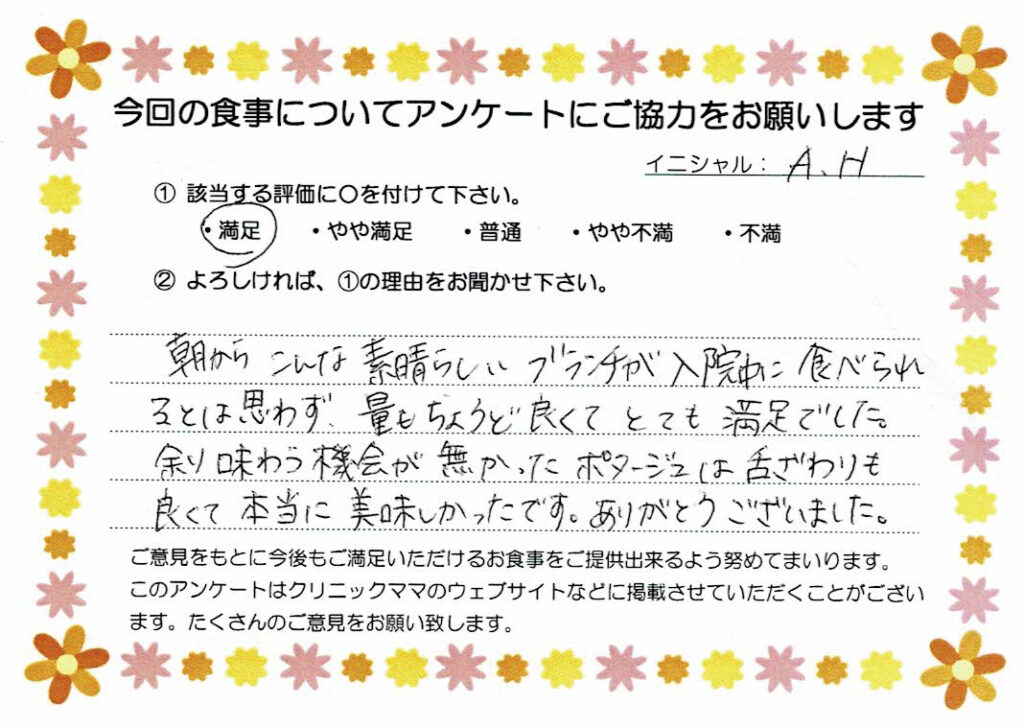 今回の食事についてアンケートにご協力をお願いします
イニシャル： A.H
① 該当する評価に〇を付けて下さい。
・満足 ・やや満足 ・普通 ・やや不満 ・不満
② よろしければ、①の理由をお聞かせ下さい。
朝から こんな 素晴らしい ブランチが 入院中に 食べられ
るとは思わず、量もちょうど良くて とても 満足でした。
余り味わう機会が 無かった ポタージュは 舌ざわりも
良くて 本当に 美味しかったです。ありがとうございました。
ご意見をもとに今後もご満足いただけるお食事をご提供出来るよう努めてまいります。
このアンケートはクリニックママのウェブサイトなどに掲載させていただくことがござい
ます。たくさんのご意見をお願い致します。